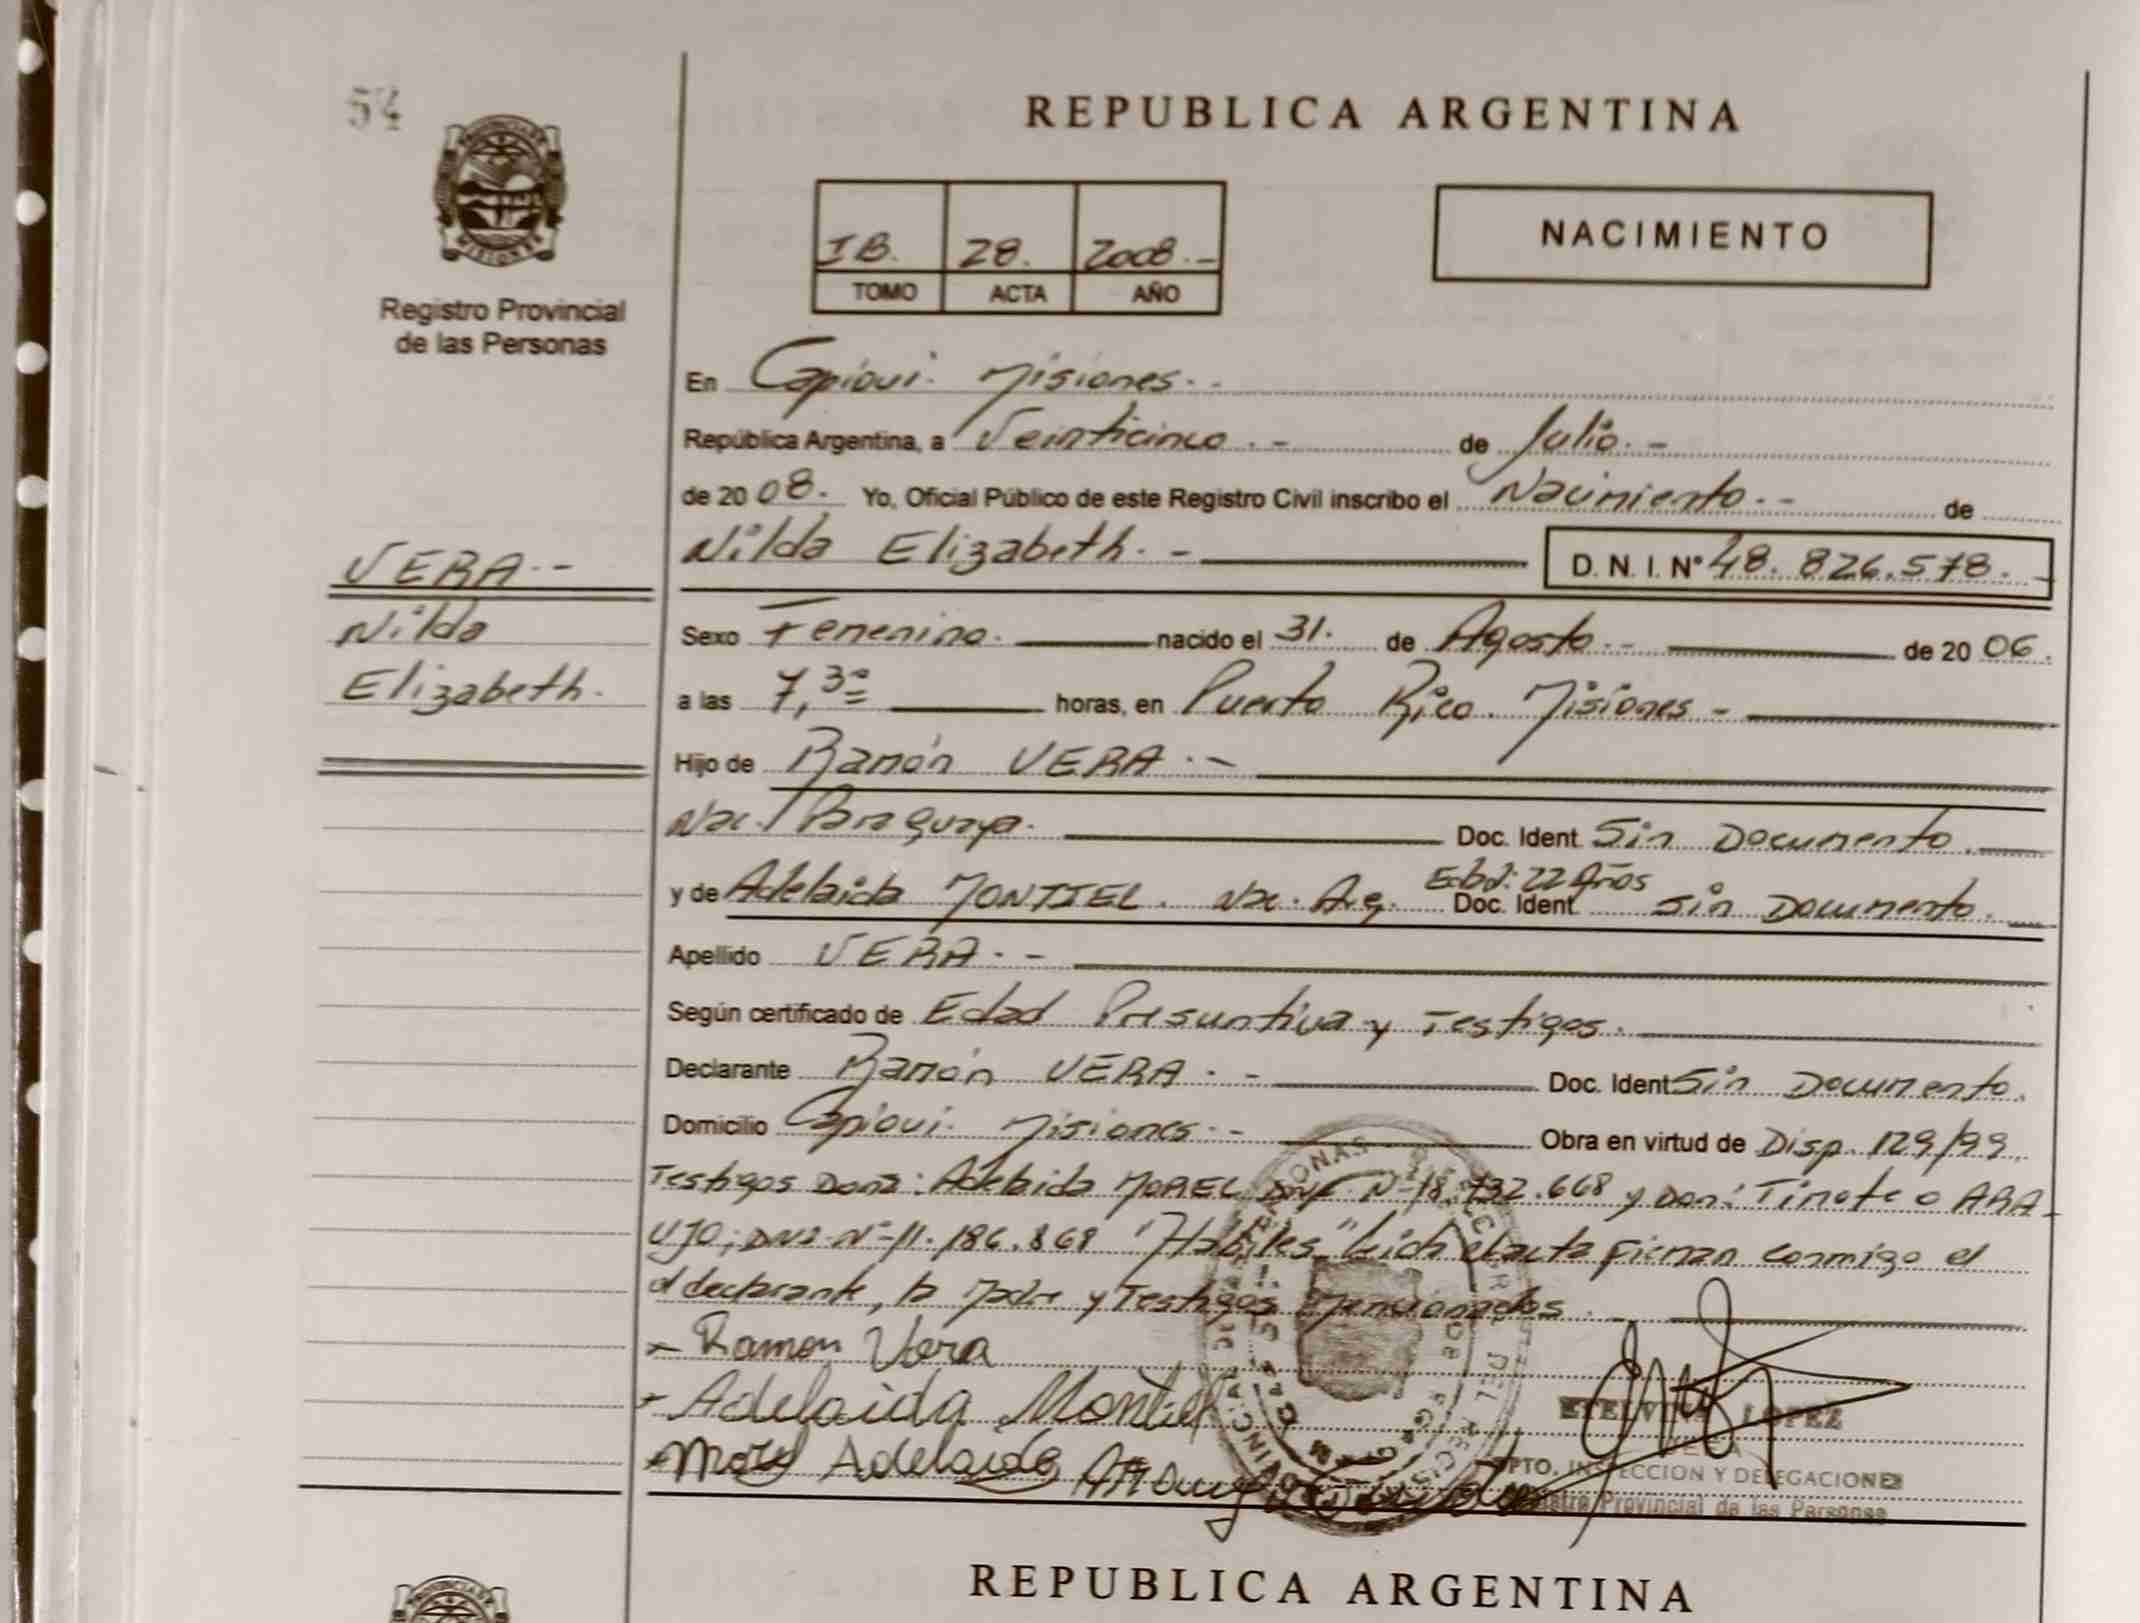 54
REPUBLICA ARGENTINA
PROVINCIA DE
MISIONES
Registro Provincial
de las Personas
IB. 28. 2008.-
TOMO ACTA AÑO
NACIMIENTO
En Capioui. Misiones.-
República Argentina, a Veinticinco.- de Julio.-
de 2008. Yo, Oficial Público de este Registro Civil inscribo el Nacimiento.- de
Nilda Elizabeth.- D. N. I. N° 48.826.578.-
VERA.-
Nilda
Elizabeth.
Sexo Femenino. nacido el 31. de Agosto.- de 2006.
a las 7,30 horas, en Puerto Rico. Misiones-
Hijo de Ramón VERA.-
Nac. Paraguaya. Doc. Ident. Sin Documento.
y de Adelaida MONTIEL. Nac. Arg. Edad: 22 Años Doc. Ident. Sin Documento.
Apellido VERA.-
Según certificado de Edad Presuntiva y Testigos.
Declarante Ramón VERA.- Doc. Ident Sin Documento.
Domicilio Capioui. Misiones.- Obra en virtud de Disp. 129/99.
Testigos Doña: Adelaida MOREL DNI N° 18.732.668 y Don: Timoteo ARA-
UJO; DNI N° 11.186.868 "Hábiles" Leida el acta firman conmigo el
el declarante, la Madre y Testigos Mencionados.
Ramon Vera
Adelaida Montiel
Morel Adelaida
ETELVINA LOPEZ
JEFA
DPTO. INSPECCION Y DELEGACIONES
Registro Provincial de las Personas
REPUBLICA ARGENTINA